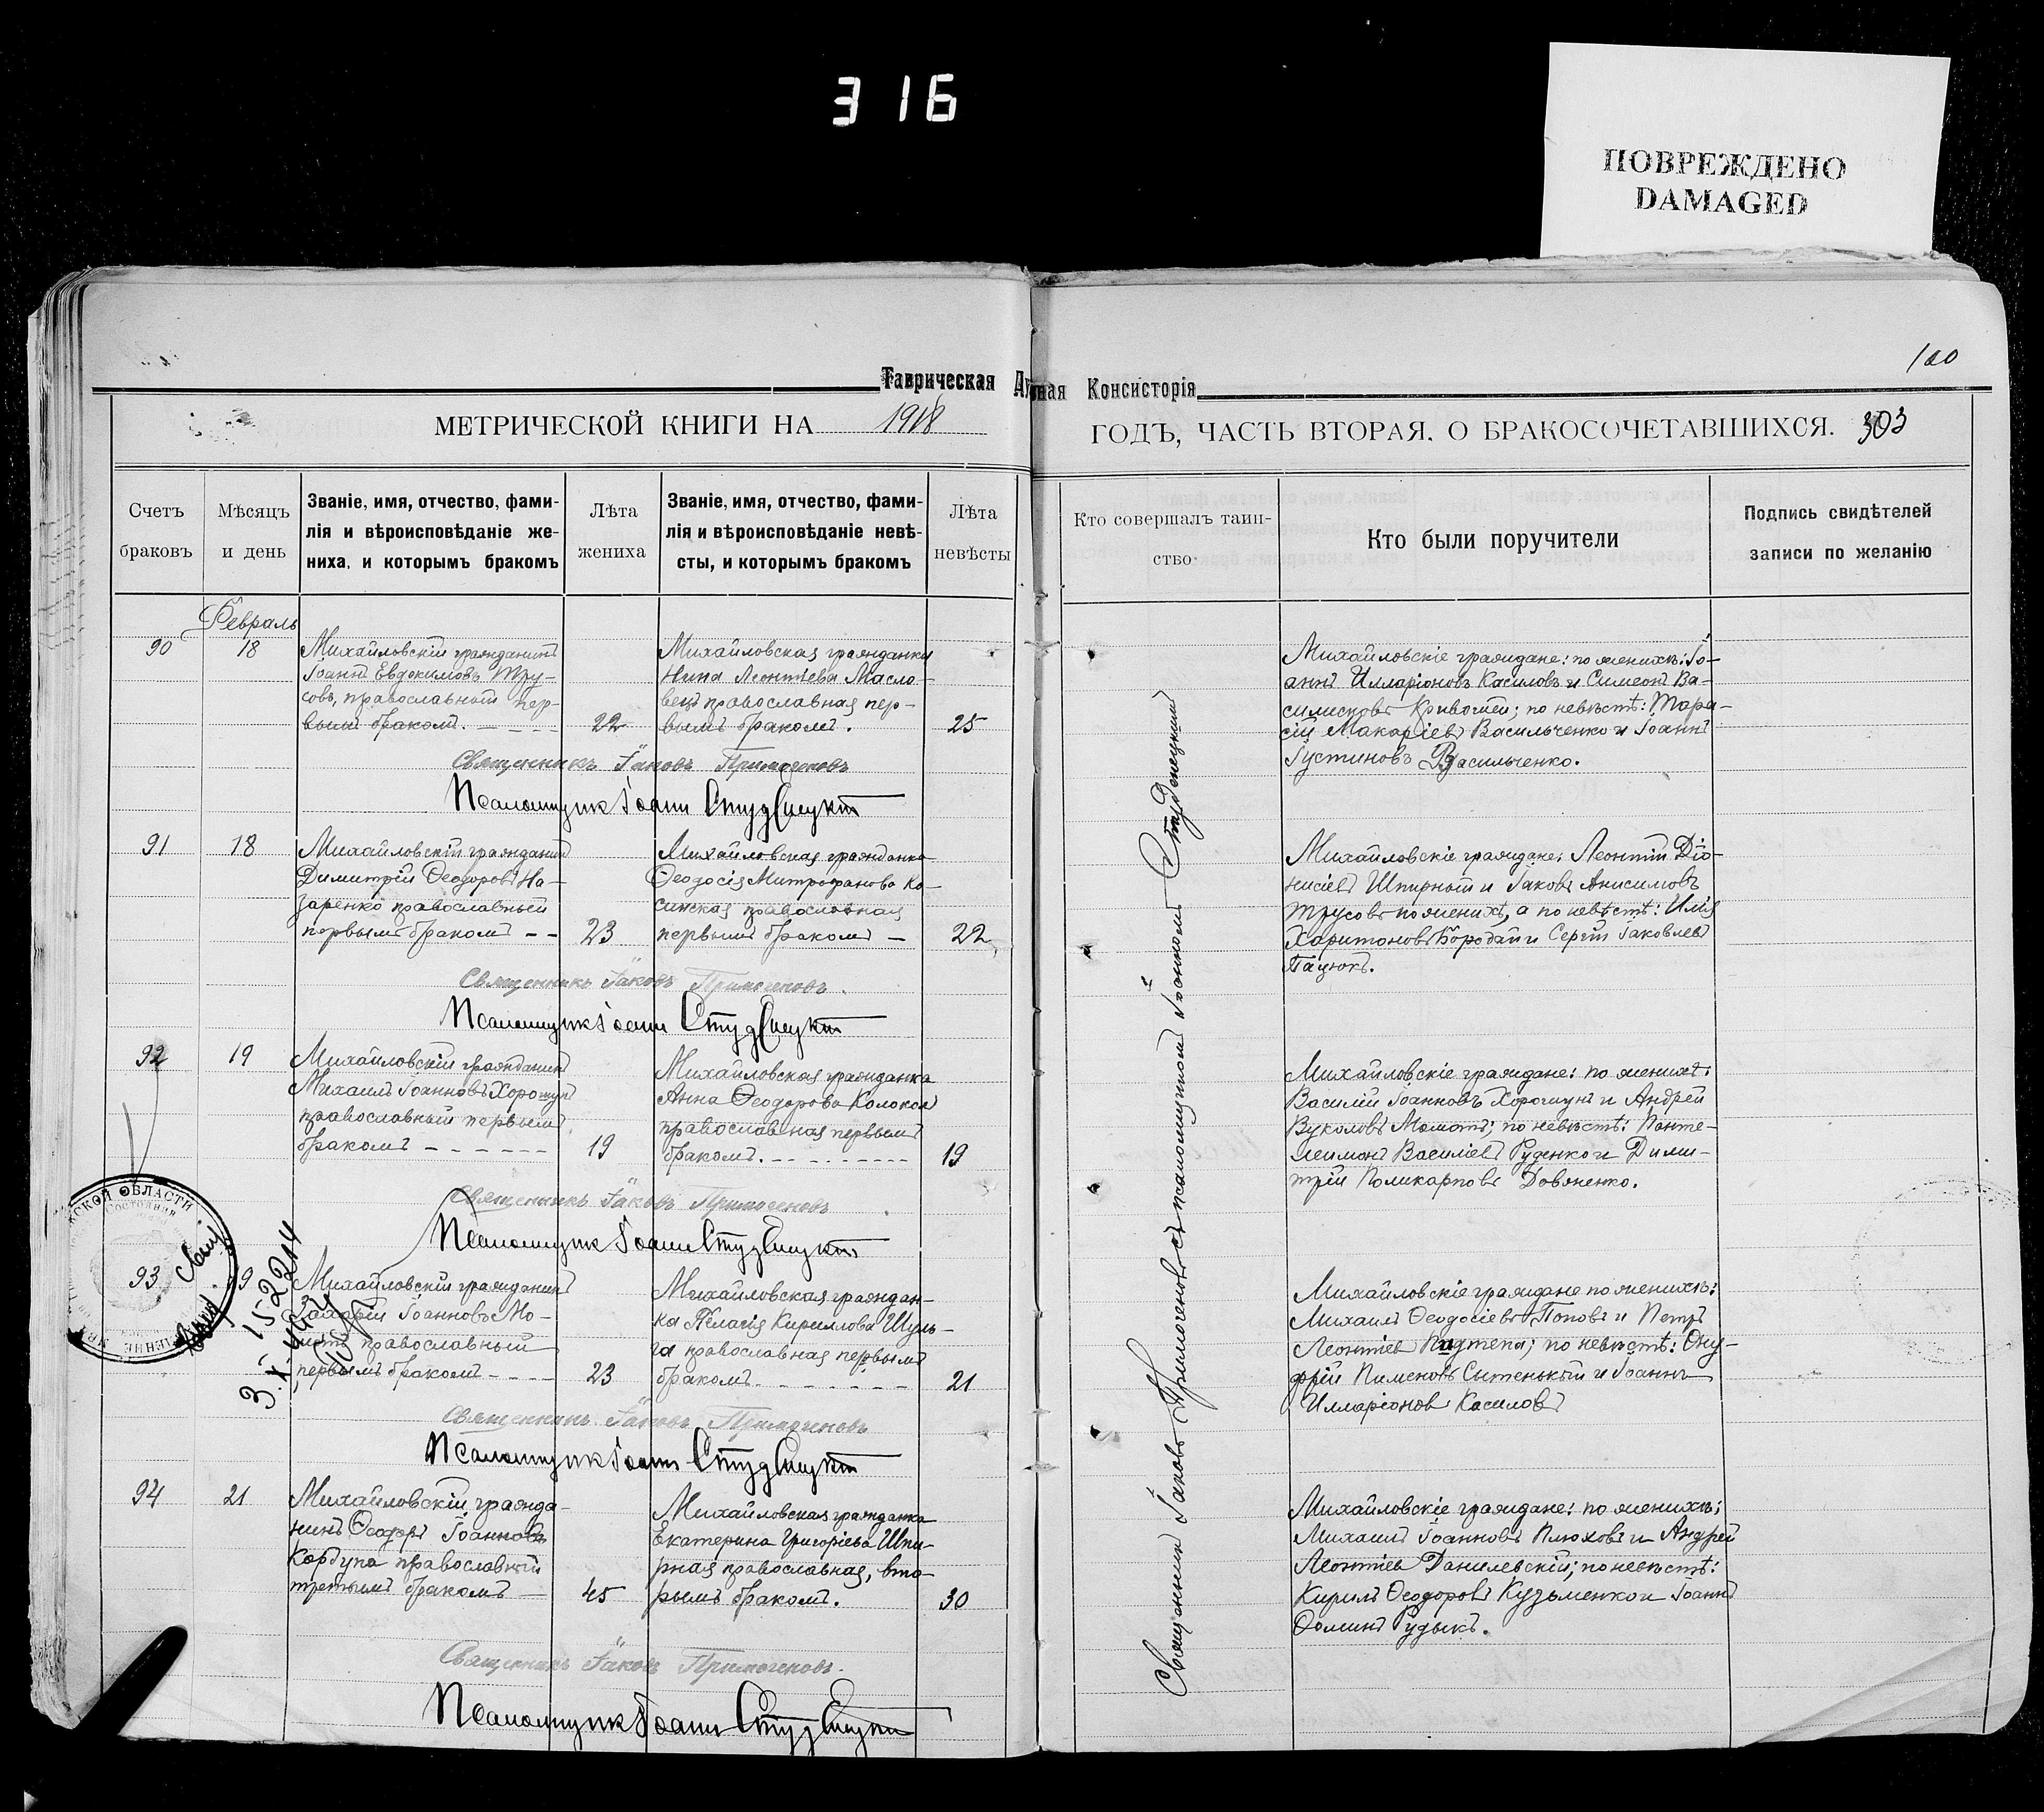 316
ПОВРЕЖДЕНО
DAMAGED
100
Таврическая Ду ная Консисторія
МЕТРИЧЕСКОЙ КНИГИ НА 1918
ГОДЪ, ЧАСТЬ ВТОРАЯ, О БРАКОСОЧЕТАВШИХСЯ. 303
Счетъ браковъ
Мѣсяцъ и день
Званіе, имя, отчество, фами-
лія и вѣроисповѣданіе же-
ниха, и которымъ бракомъ
Лѣта жениха
Званіе, имя, отчество, фами-
лія и вѣроисповѣданіе невѣ-
сты, и которымъ бракомъ
Лѣта невѣсты
Кто совершалъ таин-
ство
Кто были поручители
Подпись свидѣтелей
записи по желанію
Февраль
90
18
Михайловскій гражданинъ
Іоаннъ Евдокимовъ Тру-
совъ, православный пер-
вымъ бракомъ.
22
Михайловская гражданка
Нина Леонтіева Масло-
вецъ православная пер-
вымъ бракомъ.
25
Михайловскіе граждане: по женихѣ: Іо-
аннъ Илларіоновъ Касиловъ и Симеонъ Ва-
силисковъ Кривошей; по невѣстѣ: Тара-
сій Макаріевъ Васильченко и Іоаннъ
Іустиновъ Васильченко.
Священникъ Іаковъ Примогеновъ
Псаломщик Іоанн
91
18
Михайловскій гражданинъ
Димитрій Ѳеодоровъ На-
заренко православный
первымъ бракомъ
23
Михайловская гражданка
Ѳеодосія Митрофанова Ко-
синская православная
первымъ бракомъ
22
Михайловскіе граждане: Леонтій Діо-
нисіевъ Шпирный и Іаковъ Анисимовъ
Трусовъ по женихѣ, а по невѣстѣ: Илія
Харитоновъ Бородай и Сергій Іаковлевъ
Пацюкъ.
Священникъ Іаковъ Примогеновъ.
Псаломщик Іоанн
92
19
Михайловскій гражданинъ
Михаилъ Іоанновъ Хорошунъ
православный первымъ
бракомъ
19
Михайловская гражданка
Анна Ѳеодорова Колокол
православная первымъ
бракомъ.
19
Михайловскіе граждане: по женихѣ:
Василій Іоанновъ Хорошунъ и Андрей
Вуколовъ Момотъ; по невѣстѣ: Панте-
леимонъ Василіевъ Руденко и Дими-
трій Поликарповъ Довженко.
Священникъ Іаковъ Примогеновъ
Псаломщик Іоанн
93
19
Михайловскій гражданинъ
Захарій Іоанновъ Мо-
мотъ православный
первымъ бракомъ
23
Михайловская граждан-
ка Пелагія Кириллова Шуль-
га православная первымъ
бракомъ.
21
Михайловскіе граждане по женихѣ:
Михаилъ Ѳеодосіевъ Поповъ и Петръ
Леонтіев; по невѣстѣ: Ону-
фрій Пименовъ Сытенькій и Іоаннъ
Илларіонов Касиловъ
Священникъ Іаковъ Примогеновъ
Псаломщик Іоанн
94
21
Михайловскій гражда-
нинъ Ѳеодоръ Іоанновъ
Корбупа православный
третьимъ бракомъ
45
Михайловская гражданка
Екатерина Григоріева Шпи-
рная православная, вто-
рымъ бракомъ.
30
Михайловскіе граждане: по женихѣ:
Михаилъ Іоанновъ Плюховъ и Андрей
Леонтіев Данилевскій; по невѣстѣ:
Кирилъ Ѳеодоровъ Кузьменко и Іоаннъ
Ѳоминъ Рудыкъ.
Священникъ Іаковъ Примогеновъ.
Псаломщик Іоанн
Священник Іаковъ Примогеновъ съ псаломщикомъ Іоанномъ Студенецкимъ
СКОЙ ОБЛАСТИ